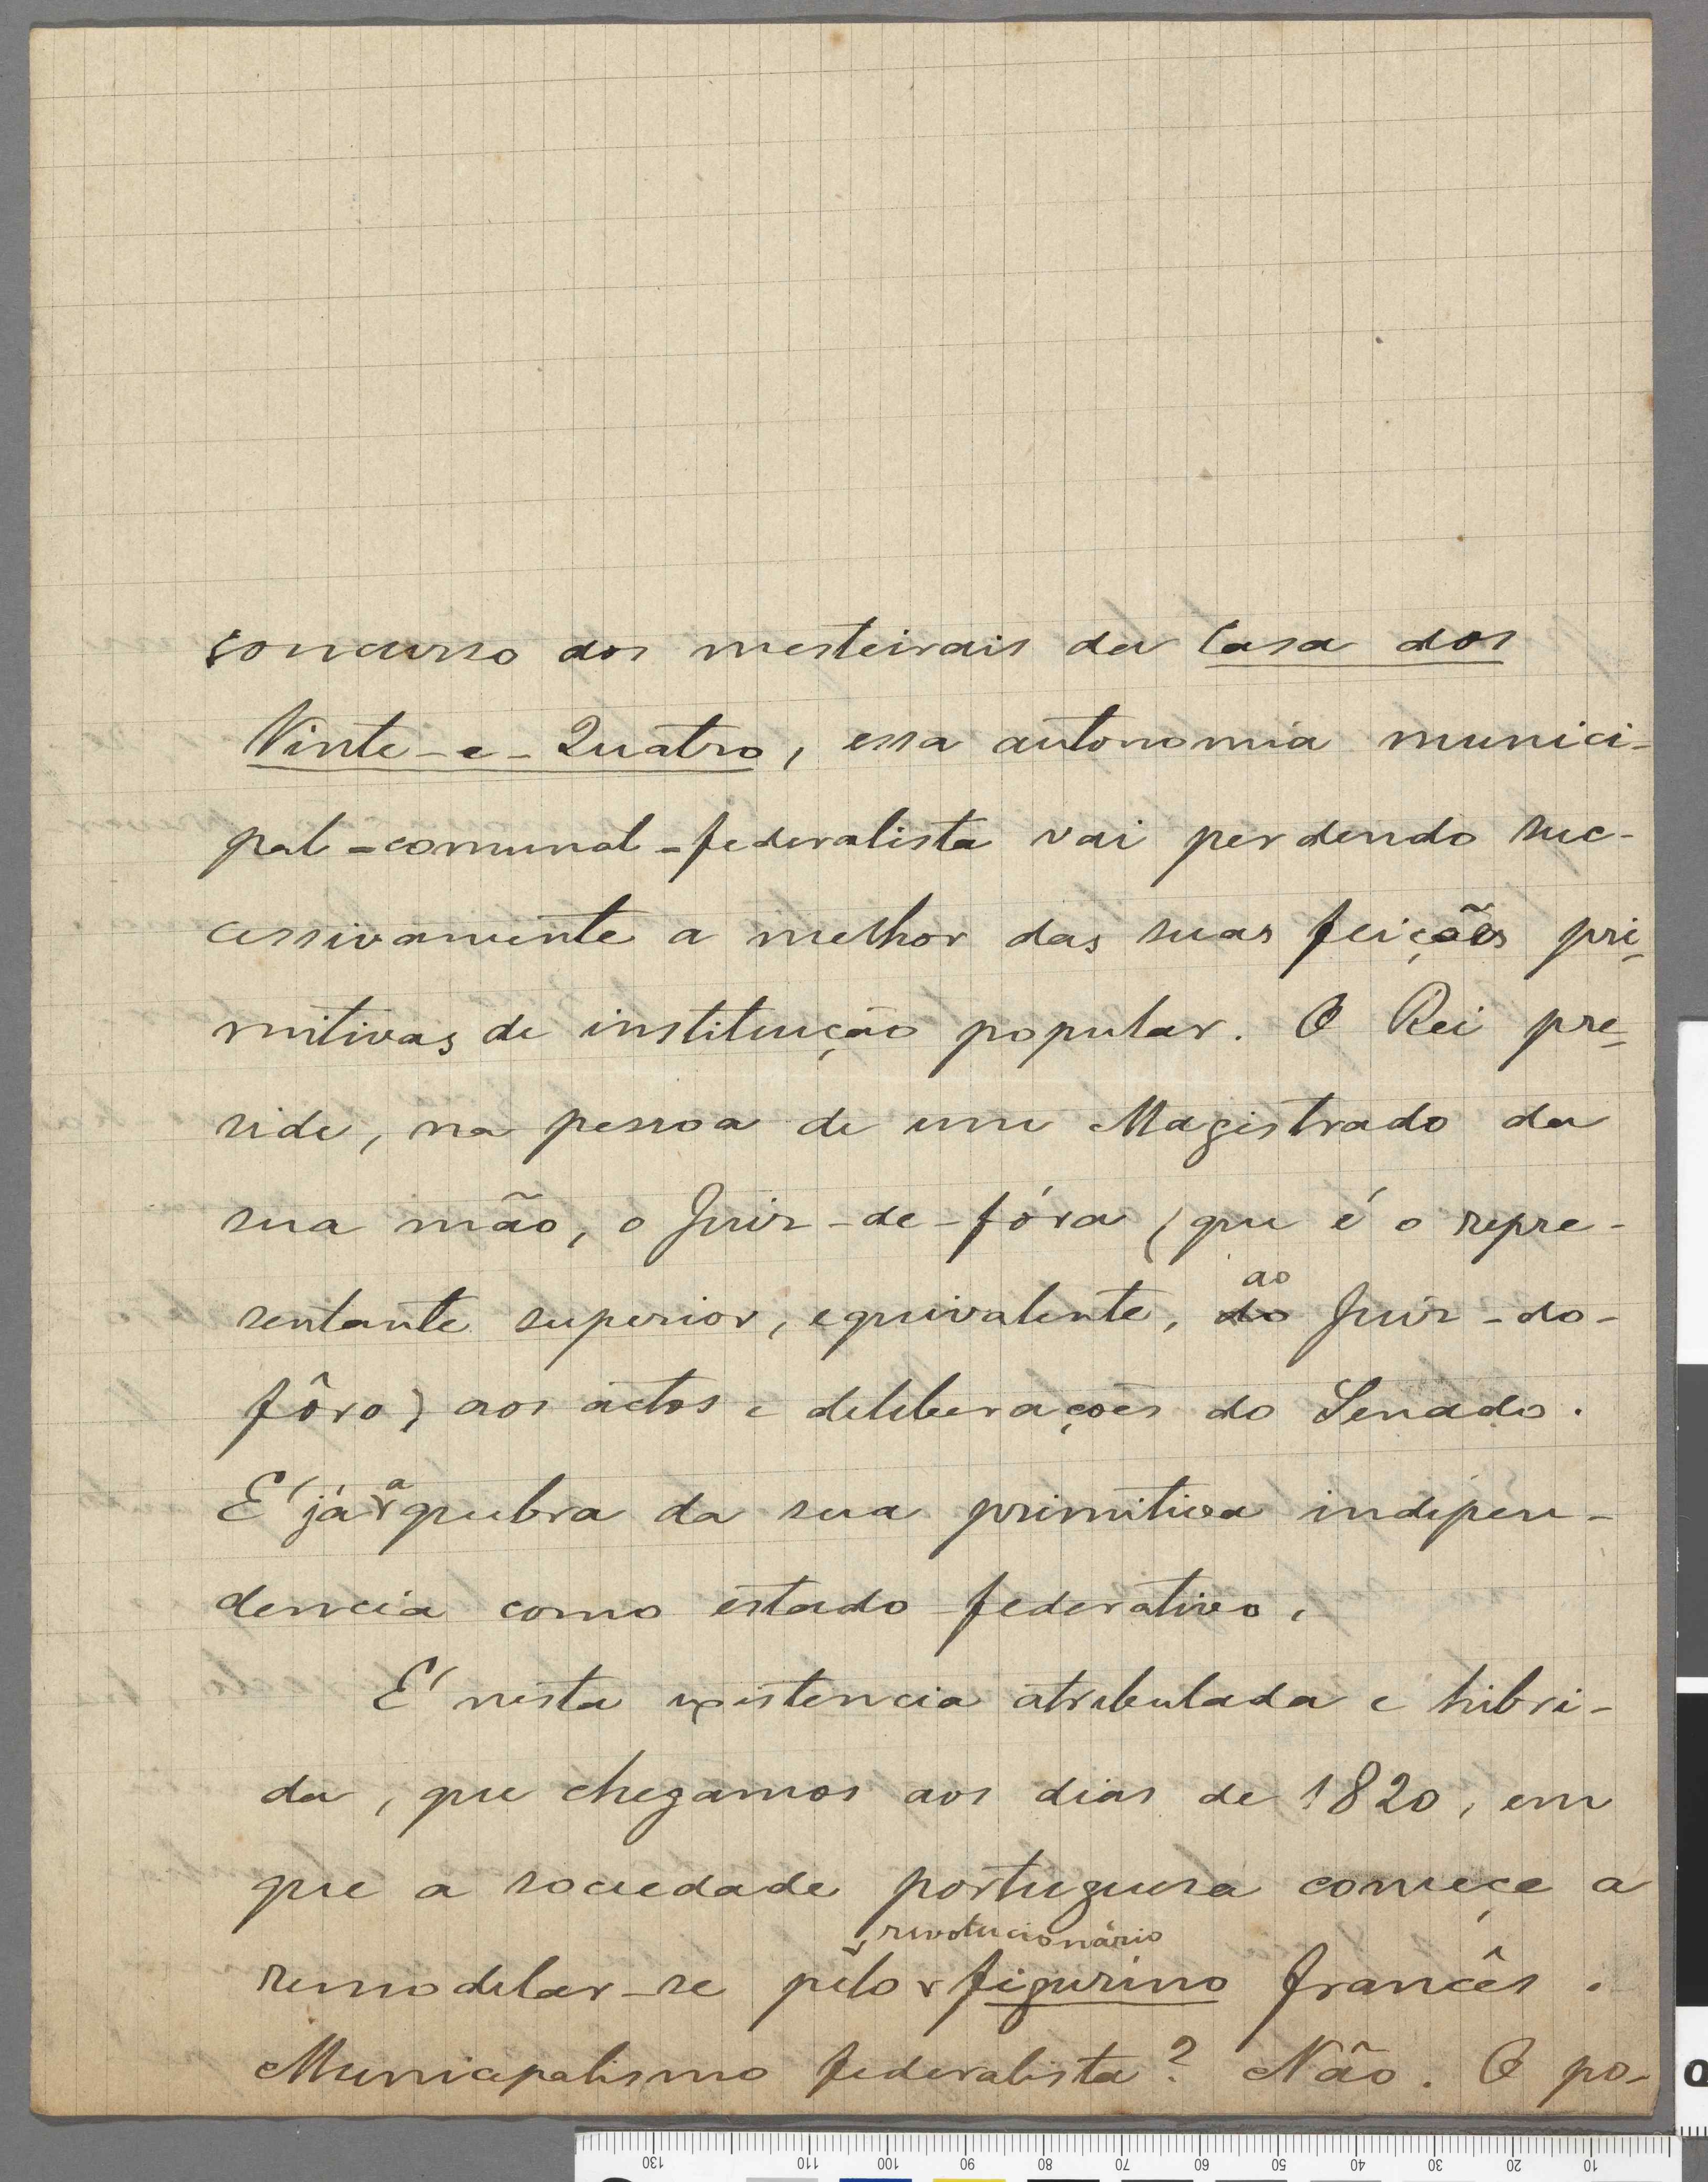 concurso dos mesteirais da Casa dos
Vinte-e-Quatro, essa autonomia munici-
pal-comunal-federalista vai perdendo suc-
cessivamente a melhor das suas feições pri-
mitivas de instituição popular. O Rei pre-
side, na pessoa de um Magistrado da
sua mão, o Juiz-de-fóra (que é o repre-
sentante superior, equivalente, do ao Juiz-do-
fôro) aos actos e deliberações do Senado.
E' já a quebra da sua primitiva indepen-
dencia como estado federativo.
E' nesta existencia atribulada e hibri-
da, que chegamos aos dias de 1820, em
que a sociedade portuguesa comece a
revolucionário
remodelar-se pelo figurino francês.
Municipalismo federalista? Não. O po-
130 110 100 90 80 70 60 50 40 30 20 10